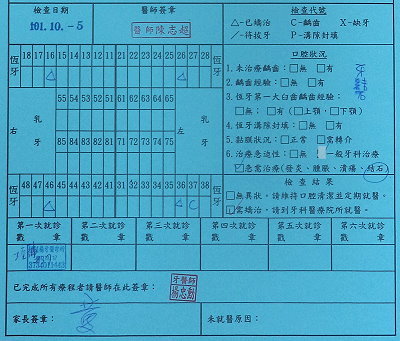 檢查日期
醫師簽章
檢查代號
101.10.-5
醫師陳志超
△-已矯治 C-齲齒 X-缺牙
／-待拔牙 P-溝隙封填
恆牙 18 17 16 15 14 13 12 11 21 22 23 24 25 26 27 28 恆牙
△ △
55 54 53 52 51 61 62 63 64 65
右 乳牙 左 乳牙
85 84 83 82 81 71 72 73 74 75
恆牙 48 47 46 45 44 43 42 41 31 32 33 34 35 36 37 38 恆牙
△ △ C
口腔狀況
1.未治療齲齒:□無 □有
2.齲齒經驗:□無 □有
3.恆牙第一大臼齒齲齒經驗:
□無;□有(□上顎,□下顎)
4.恆牙溝隙封填:□無 □有
5.黏膜狀況:□正常 □需轉介
6.治療急迫性:□無 一般牙科治療
☑急需治療(發炎、膿腫、潰瘍、結石)
檢查結果
□無異狀,請維持口腔清潔並定期就醫。
☑需矯治,請到牙科醫療院所就醫。
第一次就診戳章
第二次就診戳章
第三次就診戳章
第四次就診戳章
第五次就診戳章
第六次就診戳章
已完成所有療程者請醫師在此簽章:
家長簽章:
未就醫原因: